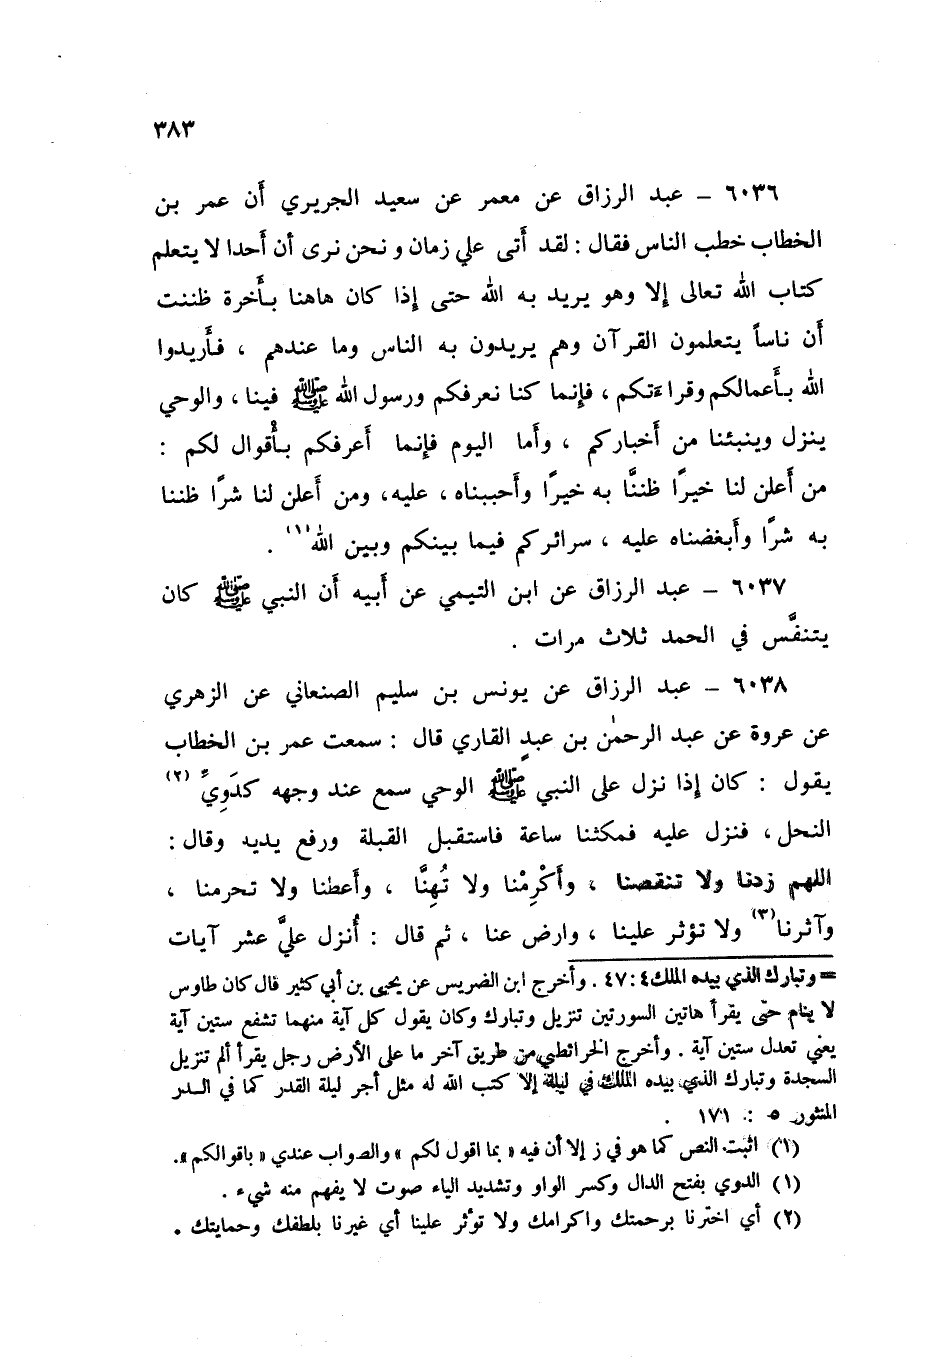 ٣٨٣
٦٠٣٦ – عبد الرزاق عن معمر عن سعيد الجريري أَن عمر بن
الخطاب خطب الناس فقال : لقد أَتى علي زمان و نحن نرى أن أَحدا لا يتعلم
كتاب الله تعالى إلا وهو يريد به الله حتى إذا كان هاهنا بأَخرة ظننت
أَن ناساً يتعلمون القرآن وهم يريدون به الناس وما عندهم ، فأَريدوا
الله بأَعمالكم وقراءتكم ، فإنما كنا نعرفكم ورسول الله ﷺ فينا ، والوحي
ينزل وينبئنا من أَخباركم ، وأَما اليوم فإنما أَعرفكم بأْقوال لكم :
من أَعلن لنا خيرًا ظننَّا به خيرًا وأَحببناه ، عليه، ومن أَعلن لنا شرًا ظننا
به شرًا وأَبغضناه عليه ، سرائركم فيما بينكم وبين الله(١) .
٦٠٣٧ – عبد الرزاق عن ابن التيمي عن أَبيه أَن النبي ﷺ كان
يتنفَّس في الحمد ثلاث مرات .
٦٠٣٨ – عبد الرزاق عن يونس بن سليم الصنعاني عن الزهري
عن عروة عن عبد الرحمٰن بن عبدٍ القاري قال : سمعت عمر بن الخطاب
يقول : كان إذا نزل على النبي ﷺ الوحي سمع عند وجهه كدَوِيِّ (٢)
النحل ، فنزل عليه فمكثنا ساعة فاستقبل القبلة ورفع يديد وقال :
اللهم زدنا ولا تنقصنا ، وأَكْرِمْنا ولا تُهِنَّا ، وأَعطنا ولا تحرمنا ،
وآثرنا(٣) ولا تؤثر علينا ، وارض عنا ، ثم قال : أُنزل عليَّ عشر آيات
= وتبارك الذي بيده الملك ٤ : ٤٧ . وأخرج ابن الضريس عن يحيى بن أبي كثير قال كان طاوس
لا ينام حتّى يقرأ هاتين السورتين تنزيل وتبارك وكان يقول كل آية منهما تشفع ستين آية
يعني تعدل ستين آية . وأخرج الخرائطي من طريق آخر ما على الأرض رجل يقرأ ألم تنزيل
السجدة وتبارك الذي بيده الملك في ليلة إلا كتب الله له مثل أجر ليلة القدر كما في الدر
المنثور ٥ : ١٧١ .
(١) اثبت النص كما هو في ز إلا أن فيه « بما اقول لكم » والصواب عندي « باقوالكم ».
(١) الدوي بفتح الدال وكسر الواو وتشديد الياء صوت لا يفهم منه شيء .
(٢) أي اخترنا برحمتك واكرامك ولا تؤثر علينا أي غيرنا بلطفك وحمايتك .